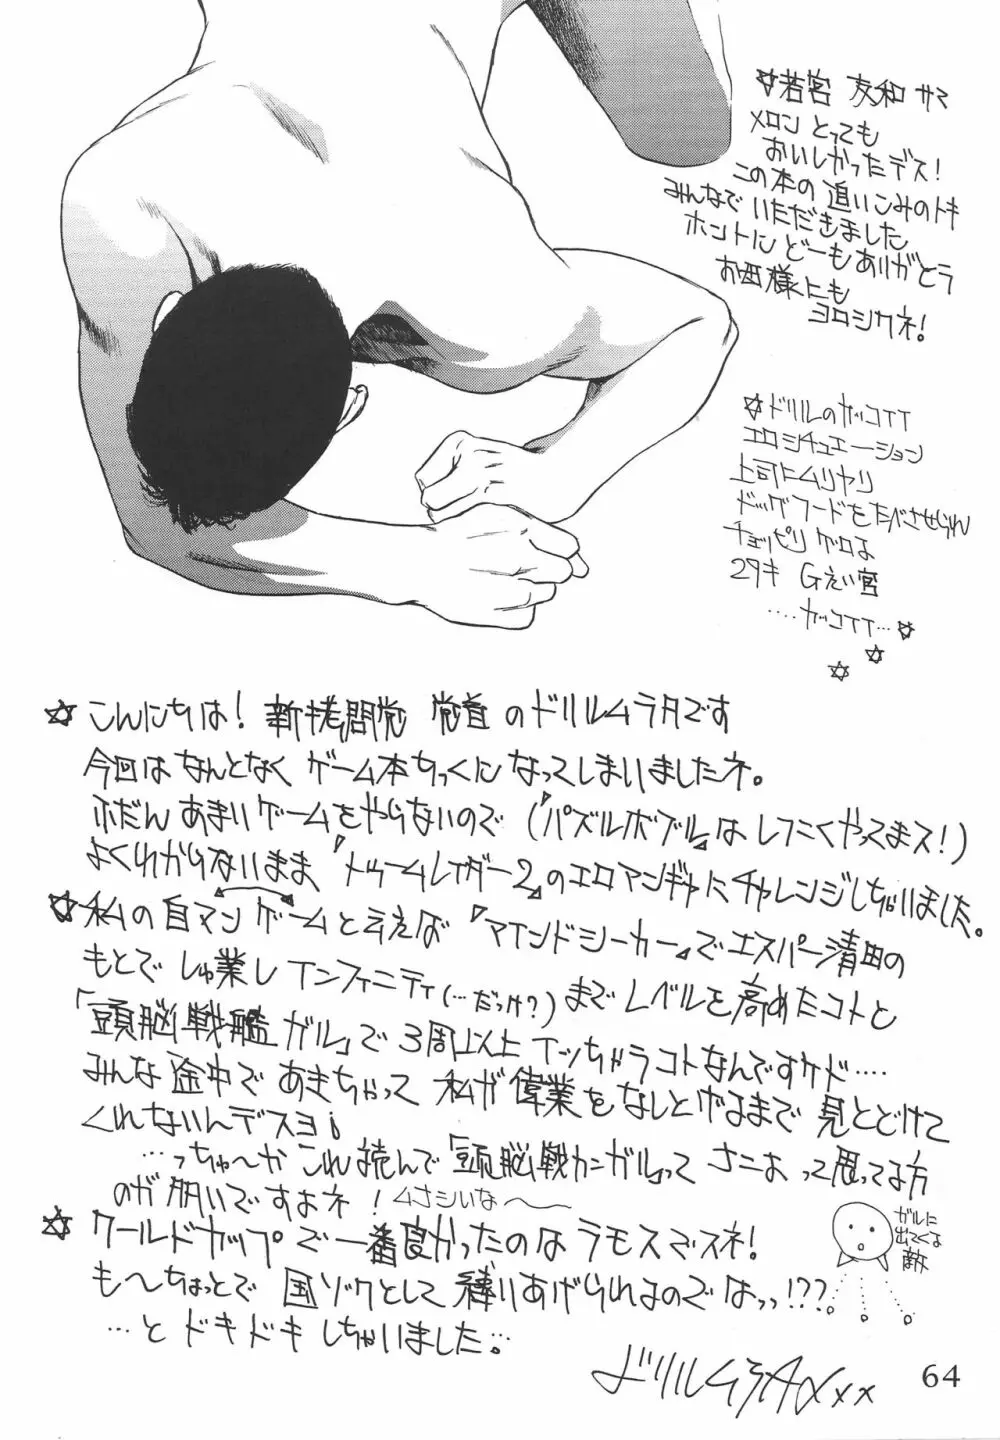 ☆若宮 友和 サマ
メロン とっても
おいしかったデス!
この本の 追いこみのトキ
みんなで いただきました
ホントに どーもありがとう
お母様にも
ヨロシクネ!
☆ドリルのカッコイイ
エロシチュエーション
上司にムリヤリ
ドッグフードをたべさせられ
チョッピリ ゲロな
29才
....カッコイイ...☆
☆
☆
☆こんにちは! 新拷問党 党首 のドリルムラタです
今回は なんとなく ゲーム本ちっくに なってしまいましたネ。
ふだん あまりゲームをやらないので(『パズルボブル』は しつこくやってマス!)
よくわからないまま『トゥームレイダー2』のエロマンガにチャレンジしちゃいました。
☆私の自マン ゲームと云えば『マインドシーカー』でエスパー清田の
もとで しゅ業し インフィニティ(…だっけ?)まで レベルを 高めたコトと
「頭脳戦艦 ガル」で 3周以上 イッちゃうコトなんですケド....
みんな 途中で あきちゃって 私が 偉業を なしとげるまで 見とどけて
くれないんデスヨ!
...っちゅ〜か これ読んで「頭脳戦カンガル」って ナニよ って思ってる方
のが 多いですよネ! ムナシいな〜
☆ワールドカップで一番良かったのは ラモスでスネ!
も〜ちょっとで 国ゾクとして 縛りあげられるのでは!??。
...と ドキドキ しちゃいました。..
ガルに
出てくる
敵
ドリルムラタxxx
64